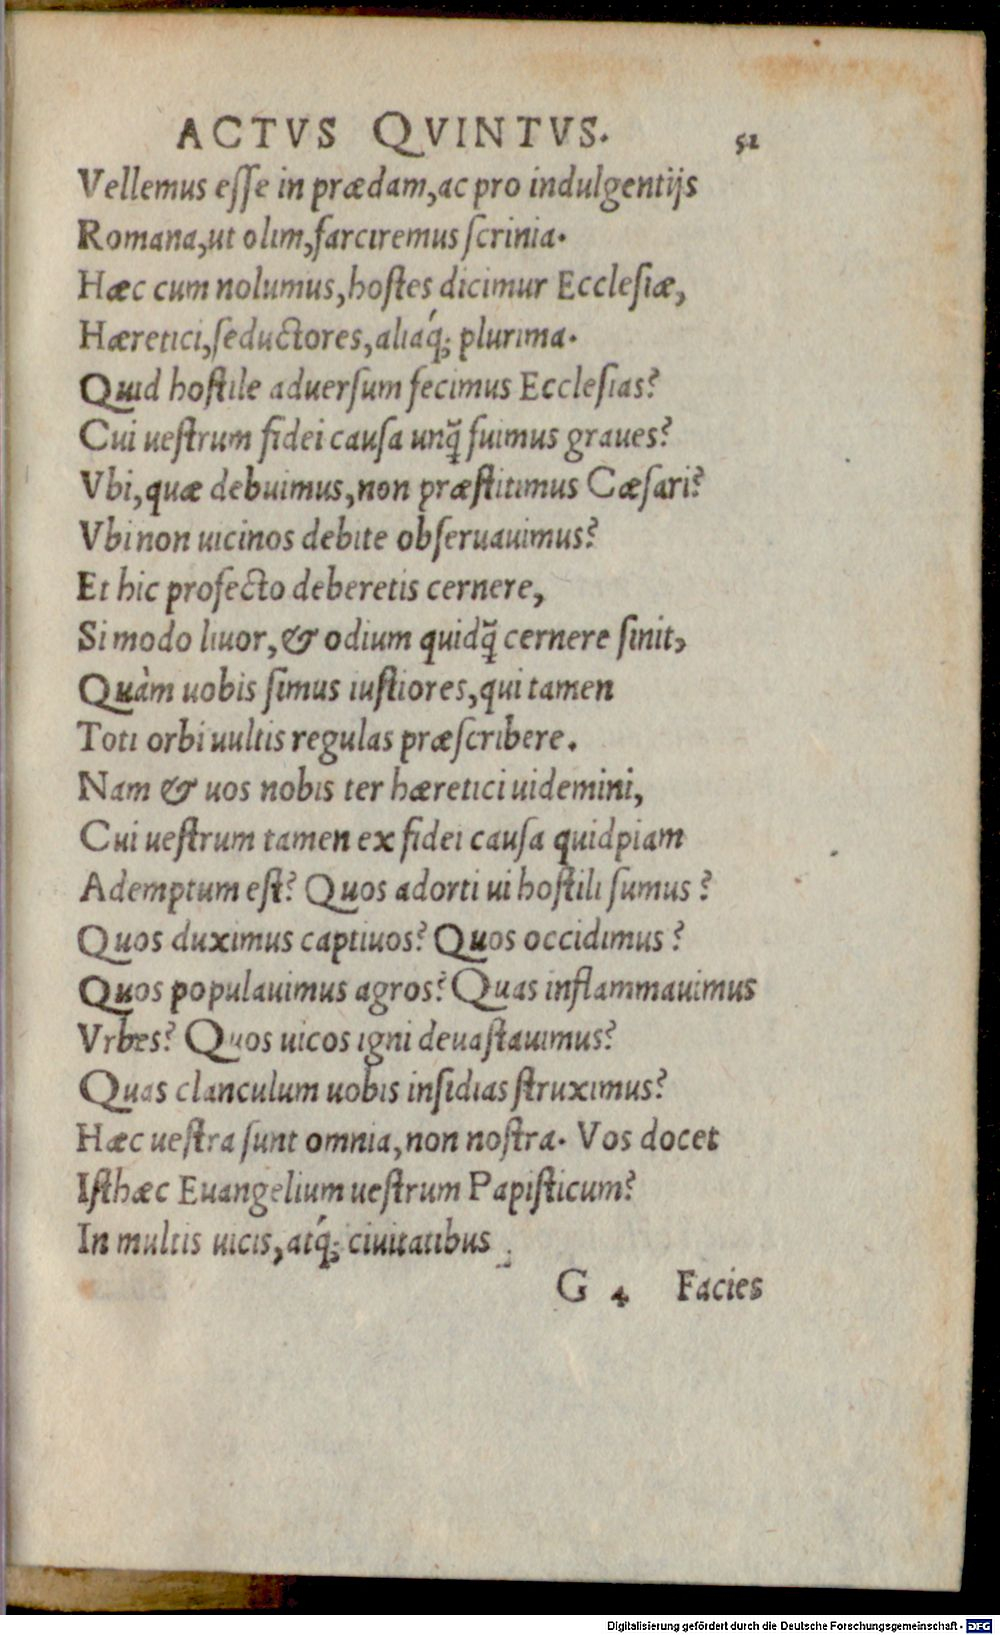 ACTVS QVINTVS. 52
Vellemus eſſe in prædam, ac pro indulgentijs
Romana, ut olim, farciremus ſcrinia.
Hæc cum nolumus, hoſtes dicimur Eccleſiæ,
Hæretici, ſeductores, aliáq; plurima.
Quid hoſtile aduerſum fecimus Eccleſias?
Cui ueſtrum fidei cauſa unq̃ fuimus graues?
Vbi, quæ debuimus, non præſtitimus Cæſari?
Vbi non uicinos debite obſeruauimus?
Et hic profecto deberetis cernere,
Si modo liuor, & odium quidq̃ cernere ſinit,
Quàm uobis ſimus iuſtiores, qui tamen
Toti orbi uultis regulas præſcribere.
Nam & uos nobis ter hæretici uidemini,
Cui ueſtrum tamen ex fidei cauſa quidpiam
Ademptum eſt? Quos adorti ui hoſtili ſumus?
Quos duximus captiuos? Quos occidimus?
Quos populauimus agros? Quas inflammauimus
Vrbes? Quos uicos igni deuaſtauimus?
Quas clanculum uobis inſidias ſtruximus?
Hæc ueſtra ſunt omnia, non noſtra. Vos docet
Iſthæc Euangelium ueſtrum Papiſticum?
In multis uicis, atq́; ciuitatibus
G 4 Facies
Digitalisierung gefördert durch die Deutsche Forschungsgemeinschaft - DFG